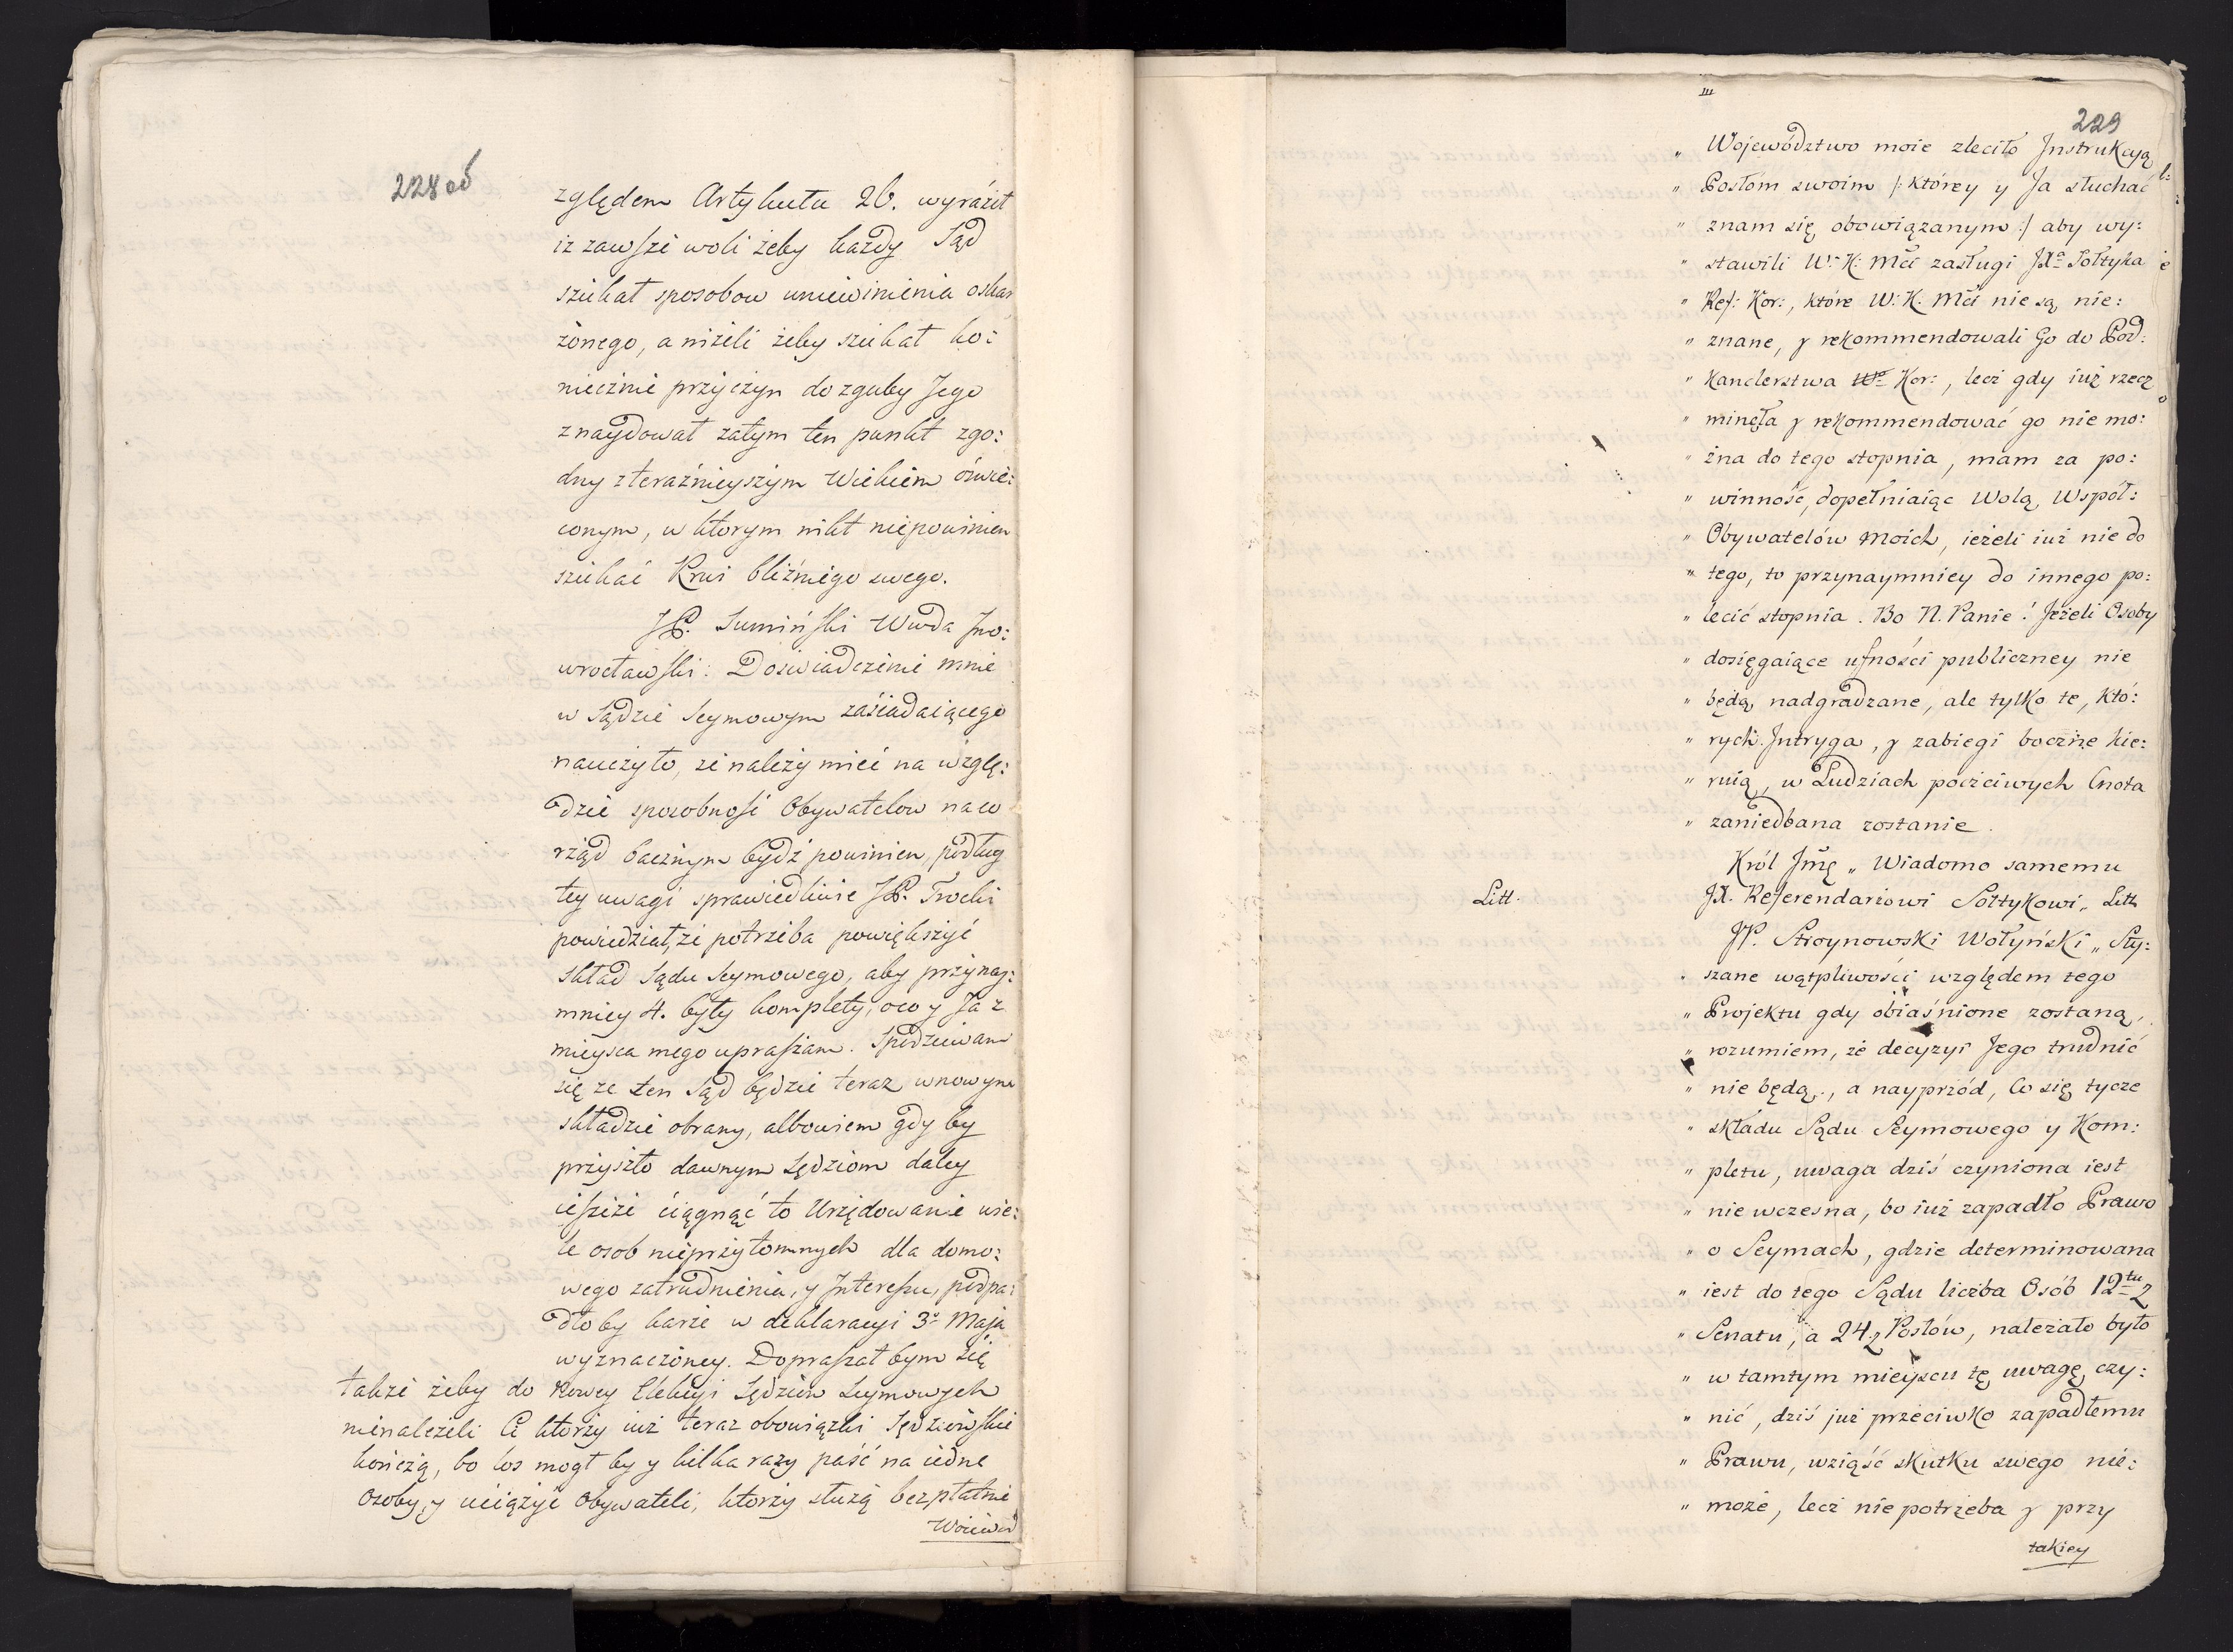 228 ob
zględem Artykułu 26. wyráźił
iz zawsze woli żeby każdy Sąd
szukał sposobow uniewinienia oskar
żonego, a niżeli żeby szukał ko:
niecznie przyczyn do zguby Jego
znaydował zatym ten punkt zgo:
dny z teraźnieyszym Wiekiem óświe:
conym, w ktorym nikt niepowinien
szukać Krwi bliźniego swego.
JP. Sumiński Wwda Ino:
wrocławski: Doswiadczenie mnie
w Sądzie Seymowym zásiadaiącego
nauczyło, ze należy mieć na wzglę:
dzie sposobność Obywatelow na co
rząd bacznym bydź powinien, podług
tey uwagi sprawiedliwie JP. Trocki
powiedział, że potrzeba powiększyć
skład Sądu Seymowego, aby przynay:
mniey 4. były komplety, oco y Ja z
mieysca mego upraszam. Spodziewam
się ze ten Sąd będzie teraz wnowym
składzie obrany, albowiem gdy by
przyszło dawnym Sędziom daley
ieszcze ciągnąć to Urzędowanie wie:
le osob nieprzytomnych dla domo:
wego zatrudnienia, y Interessu, podpa:
dłoby karze w deklaracyi 3º Maja
wyznaczoney. Dopraszał bym się
także żeby do nowey Elekcyi Sędziow Seymowych
nienależeli Ci ktorzy iuż teraz obowiązki Sędziowskie
kończą, bo los mogł by y kilka razy paść na iedne
Osoby, y uciążyć Obywateli, ktorzy służą bezpłatnie
Woiewód
229
„ Województwo moie zleciło Instrukcyą
„ Posłom swoim /: którey y Ja słuchać
„ znam się obowiązanym :/ aby wy:
„ stawili W: K: Mći zasługi JXª Sołtyka
„ Ref: Kor:, które W: K: Mći nie są nie:
„ znane, y rekommendowali Go do Pod:
„ Kanclerstwa Kor:, lecz gdy iuż rzecz
„ minęła y rekommendować go nie mo:
„ żna do tego stopnia, mam za po:
„ winność, dopełniaiąc Wolą Współ:
„ Obywatelów moich, ieżeli iuż nie do
„ tego, to przynaymniey do innego po:
„ lecić stopnia. Bo N. Panie! Jeżeli Osoby
„ dosięgaiące ufności publiczney nie
„ będą nadgradzane, ale tylko te, któ:
„ rych Intryga, y zabiegi boczne kie:
„ ruią, w Ludziach poczciwych Cnota
„ zaniedbana zostanie.
Król Jmę „ Wiadomo samemu
Litt. JX. Referendariowi Sołtykowi „ Litt
JP. Stroynowski Wołyński „ Sły:
„ szane wątpliwości względem tego
„ Projektu gdy obiaśnione zostaną,
„ rozumiem, że decyzyi Jego trudnić
„ nie będą, a nayprzód, Co się tycze
„ składu Sądu Seymowego y Kom:
„ pletu, uwaga dziś czyniona iest
„ nie wczesna, bo iuż zapadło Prawo
„ o Seymach, gdzie determinowana
„ iest do tego Sądu liczba Osób 12tu z
„ Senatu, a 24. z Posłów, należało było
„ w tamtym mieyscu tę uwagę czy:
„ nić, dziś już przeciwko zapadłemu
„ Prawu, wziąść skutku swego nie:
„ może, lecz nie potrzeba y przy
takiey